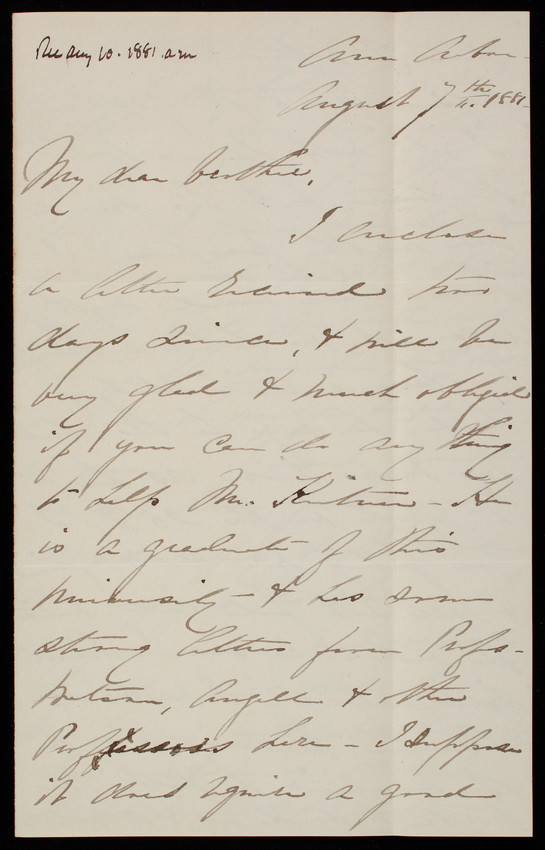 Rec Aug 10. 1881. a m
Ann Arbor
August 7th. 1881.
My dear brother,
I enclose
a letter received two
days since, & will be
very glad & much obliged
if you can do any thing
to help Mr. - He
is a graduate of this
university - & has some
strong letters from Profs -
Watson, Angell & other
Professors here - I suppose
it does require a good